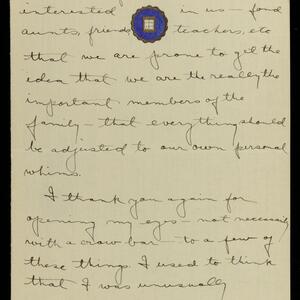 interested in us — fond
aunts, friends, teachers, etc
that we are prone to get the
idea that we are the really the
important members of the
family — that everything should
be adjusted to our own personal
whims.
I thank you again for
opening my eyes — not necessarily
with a crow bar — to a few of
these things. I used to think
that I was unusually